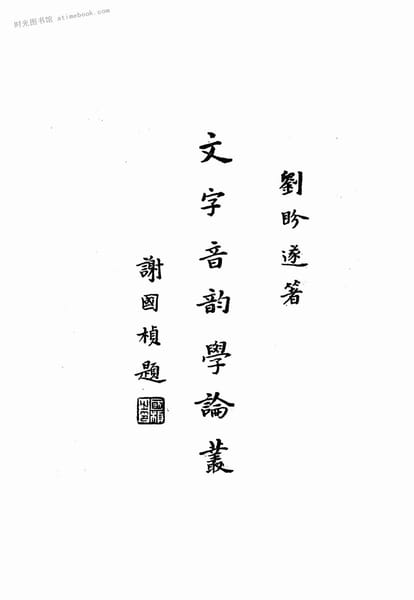 时光图书馆 atimebook.com
劉盼遂著
文字音韵學論叢
謝國楨題